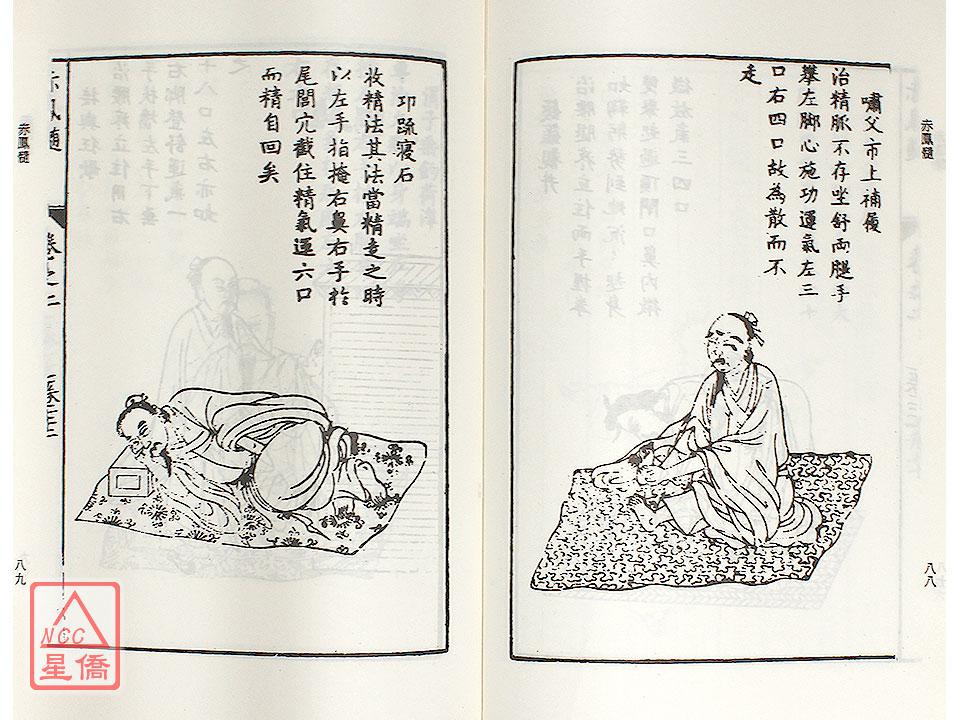 赤鳳髓
嘯父市上補履
治精脈不存坐舒兩腿手
攀左脚心施功運氣左三
口右四口故為散而不
走
八八
赤鳳髓
卭疏寢石
收精法其法當精走之時
以左手指掩右鼻右手於
尾閭穴截住精氣運六口
而精自回矣
赤鳳髓
卷之二
八九
NCC
星僑